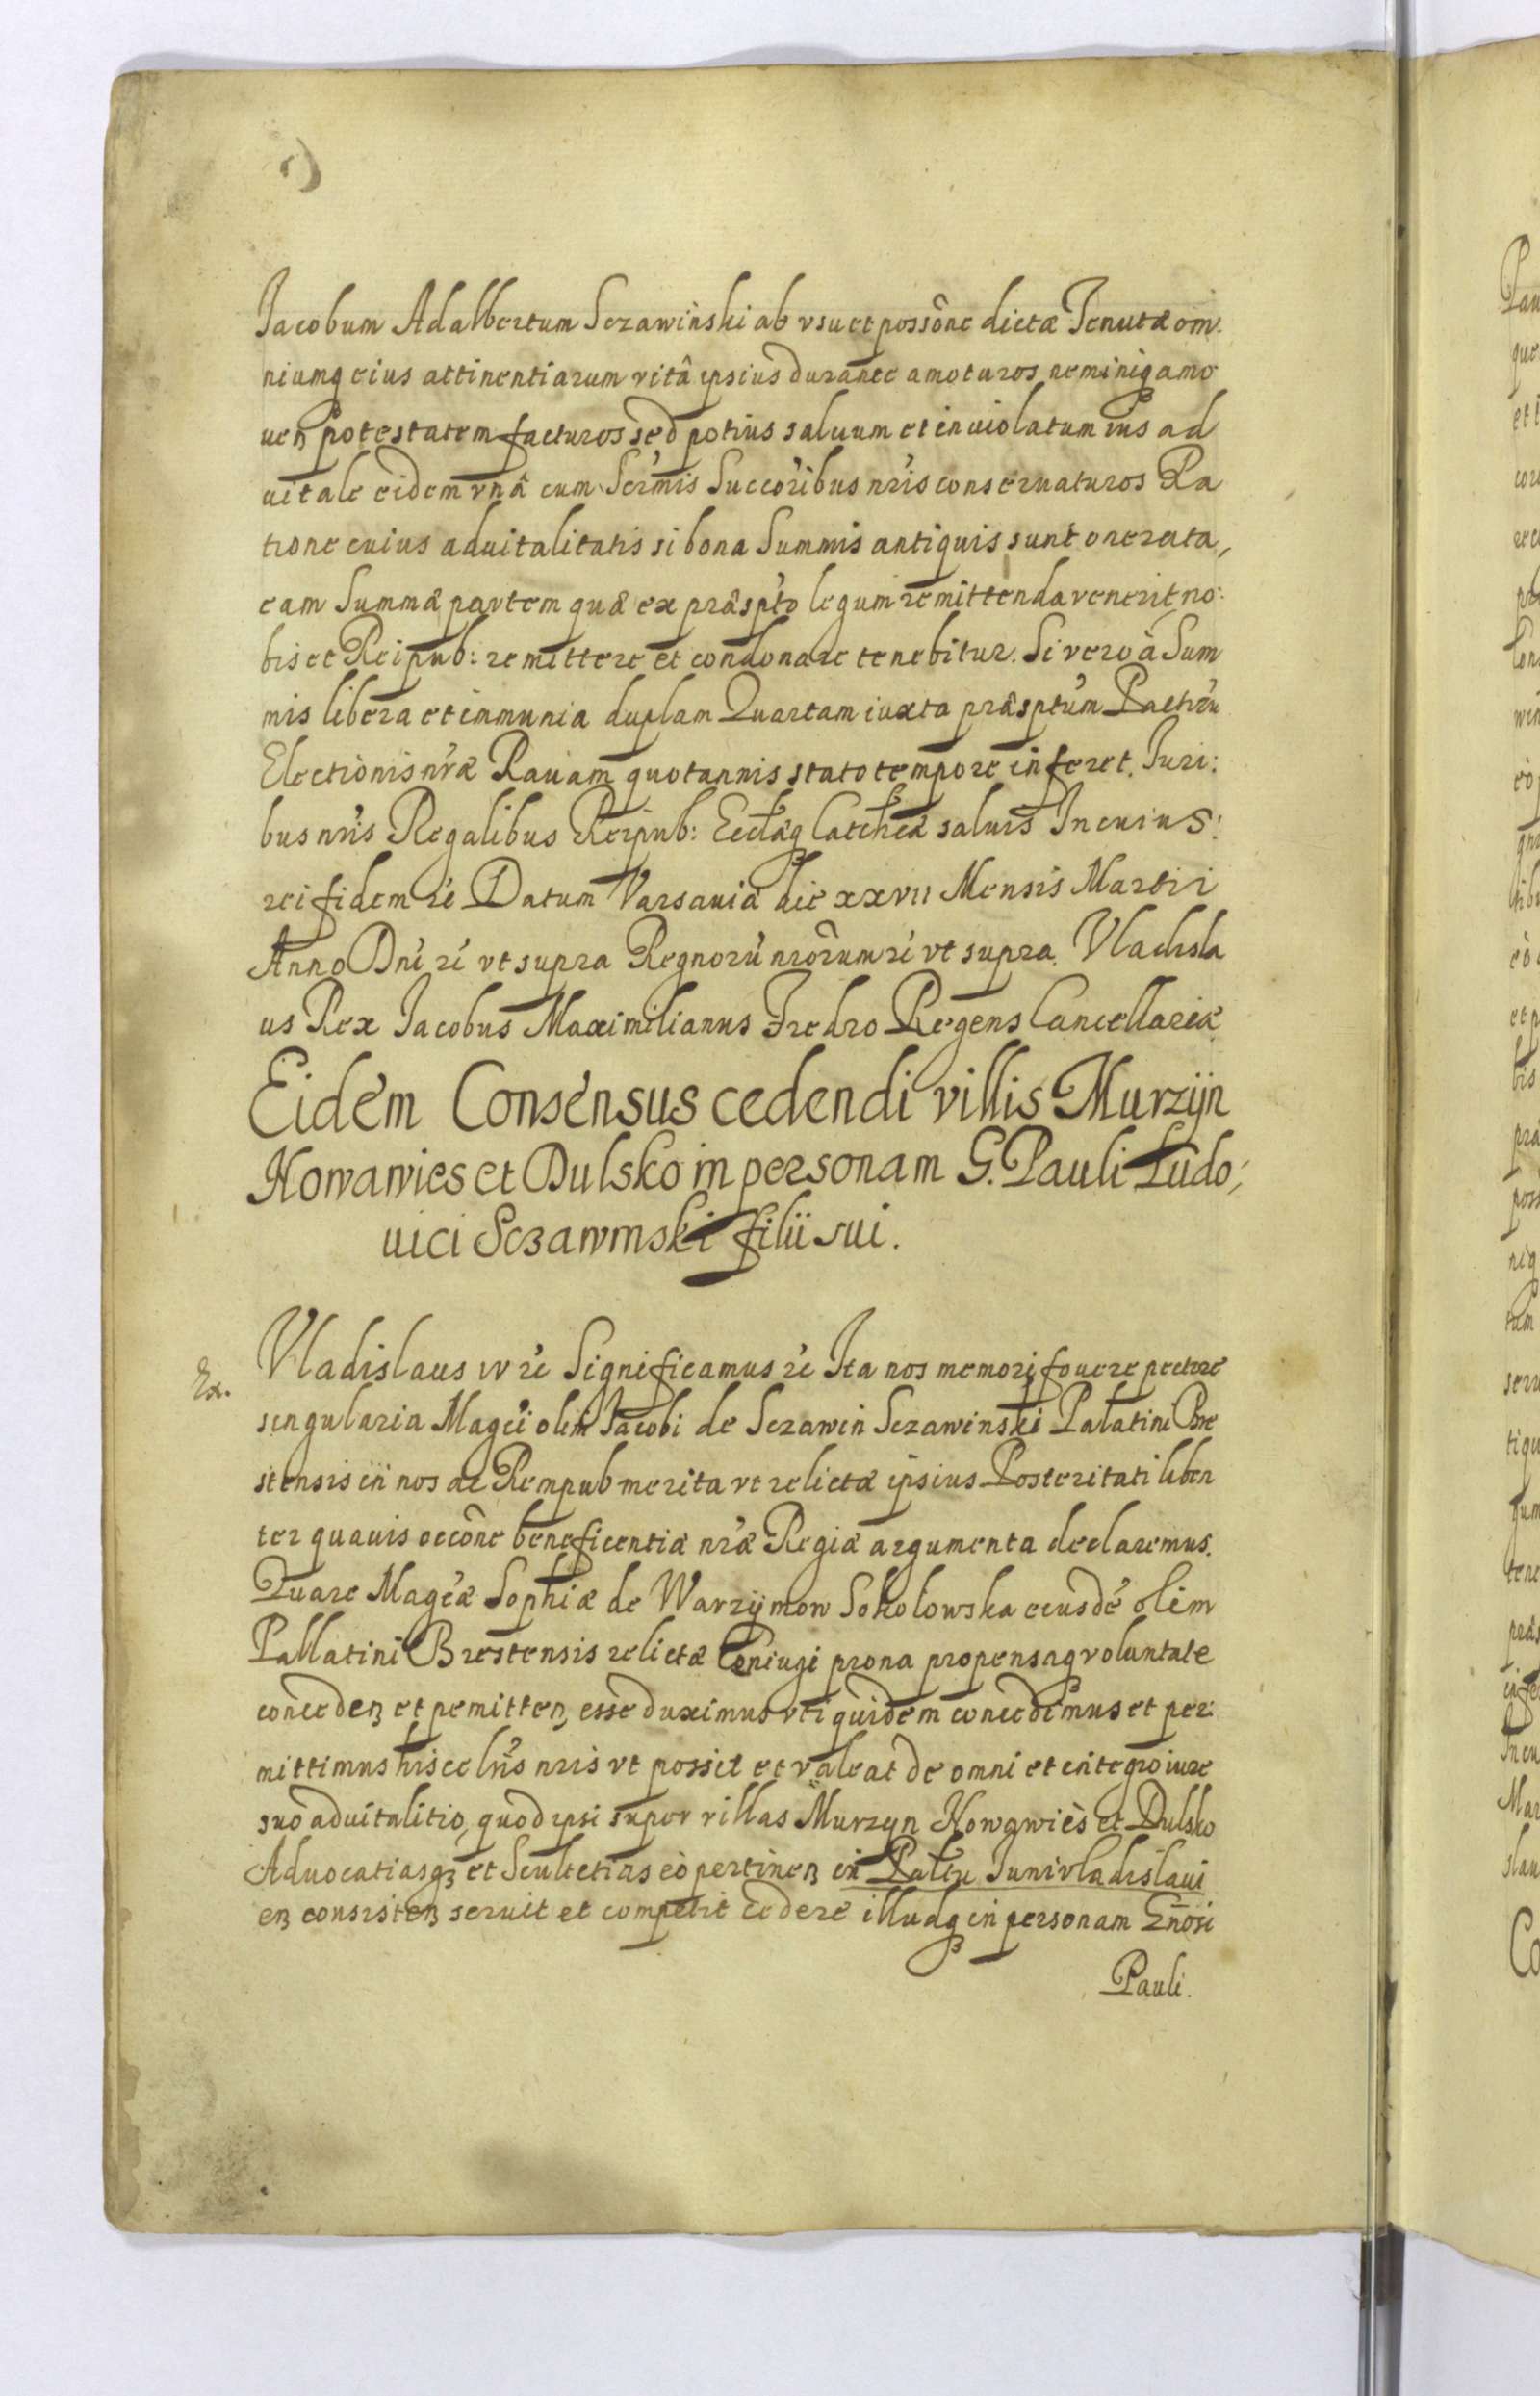 Iacobum Adalbertum Sczawinski ab vsu et possone dictæ Tenutæ om:
niumq eius attinentiarum vitâ ipsius durante amoturos neminiq amo
uen potestatem facturos sed potius saluum et inuiolatum ius ad
uitale eidem vnâ cum Sermis Succoribus nris conseruaturos Ra
tione cuius aduitalitatis si bona Summis antiquis sunt onerata,
eam Summæ partem quæ ex præspto legum remittenda venerit no:
bis et Reipub: remittere et condonare tenebitur. Si vero à Sum
mis libera et immunia duplam Quartam iuxta præsptum Pactru
Electionis nræ Rauam quotannis stato tempore inferet. Iuri:
bus nris Regalibus Reipub: Ecclæq Catchæ saluis In cuius:
rei fidem ré Datum Varsauiæ die xxvii Mensis Martii
Anno Dni ré vt supra Regnorú nrorum ré vt supra. Vladisla
us Rex Iacobus Maximilianus Fredro Regens Cancellariæ
Eidem Consensus cedendi villis Murzijn
Nowawies et Dulsko in personam G. Pauli Ludo;
uici Sczawinski filii sui.
Ex.
Vladislaus IV ré Significamus ré Ita nos memori fouere pectore
singularia Magci olim Iacobi de Sczawin Sczawinski Palatini Bre
stensis in nos ac Rempub merita vt relictæ ipsius Posteritati liben
ter quauis occone beneficentiæ nræ Regiæ argumenta declaremus.
Quare Magcæ Sophiæ de Warzÿmow Sokolowska eiusdé olim
Pallatini Brestensis relictæ Coniugi prona propensaq voluntate
conceden et pemitten, esse duximus vti quidem concedimus et per:
mittimus hisce lris nris vt possit et valeat de omni et integro iure
suo aduitalitio, quod ipsi super villas Murzyn Nowawiès et Dulsko
Aduocatiasq et Scultetias eò pertinen in Paltu Iunivladislaui
en consisten seruit et competit cedere illudq in personam Gnosi
Pauli.